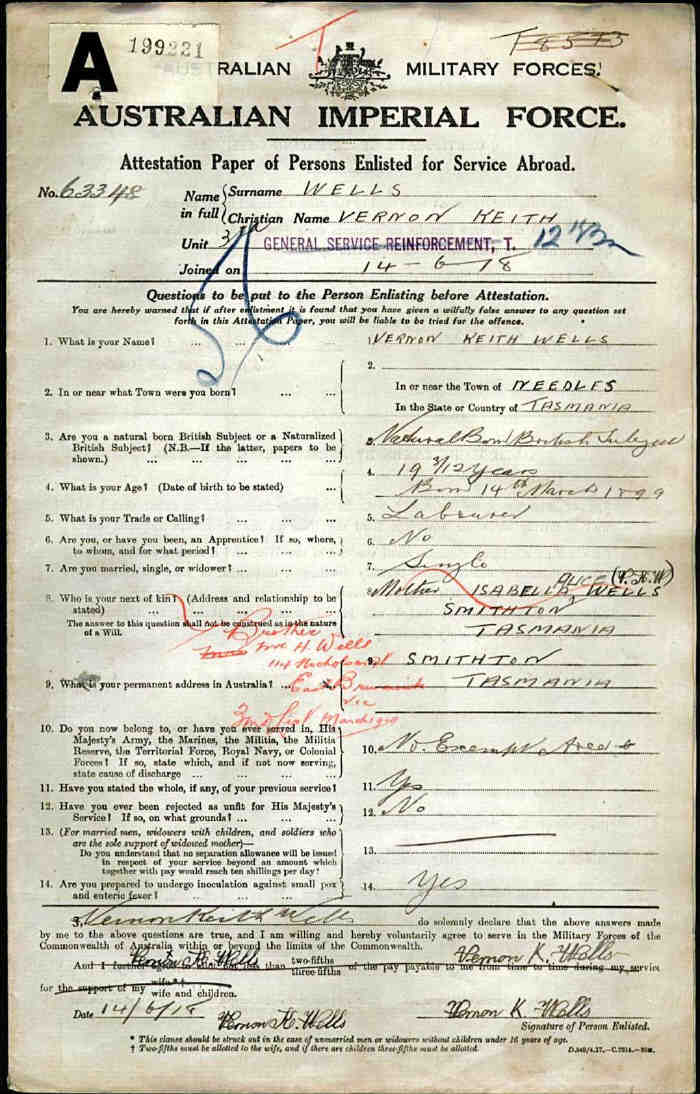 A 199221
T 8575
AUSTRALIAN MILITARY FORCES.
AUSTRALIAN IMPERIAL FORCE.
Attestation Paper of Persons Enlisted for Service Abroad.
No. 63348
Name in full { Surname WELLS
Christian Name VERNON KEITH
Unit GENERAL SERVICE REINFORCEMENT, T.
Joined on 14-6-18
Questions to be put to the Person Enlisting before Attestation.
You are hereby warned that if after enlistment it is found that you have given a wilfully false answer to any question set
forth in this Attestation Paper, you will be liable to be tried for the offence.
1. What is your Name? ... ... ... 1. VERNON KEITH WELLS
2. In or near what Town were you born? ... ... 2. In or near the Town of NEEDLES
In the State or Country of TASMANIA
3. Are you a natural born British Subject or a Naturalized
British Subject? (N.B.—If the latter, papers to be
shown.) ... ... ... ... 3. Natural Born British Subject
4. What is your Age? (Date of birth to be stated) ... 4. 19 3/12 years
Born 14th March 1899
5. What is your Trade or Calling? ... ... ... 5. Labourer
6. Are you, or have you been, an Apprentice? If so, where,
to whom, and for what period? ... ... ... 6. No
7. Are you married, single, or widower? ... ... ... 7. Single
8. Who is your next of kin? (Address and relationship to be
stated) ... ... ... ... 8. Mother ISABELLA ALICE WELLS (V.K.W)
SMITHTON
TASMANIA
The answer to this question shall not be construed as in the nature
of a Will.
Brother
H. Wells
114 Nicholson St
East Brunswick
Vic
9. What is your permanent address in Australia? ... 9. SMITHTON
TASMANIA
10. Do you now belong to, or have you ever served in, His
Majesty's Army, the Marines, the Militia, the Militia
Reserve, the Territorial Force, Royal Navy, or Colonial
Forces? If so, state which, and if not now serving,
state cause of discharge ... ... ... ... 10. No. Exempt Area
11. Have you stated the whole, if any, of your previous service? 11. Yes
12. Have you ever been rejected as unfit for His Majesty's
Service? If so, on what grounds? ... ... ... 12. No
13. (For married men, widowers with children, and soldiers who
are the sole support of widowed mother)—
Do you understand that no separation allowance will be issued
in respect of your service beyond an amount which
together with pay would reach ten shillings per day? 13.
14. Are you prepared to undergo inoculation against small pox
and enteric fever? ... ... ... ... 14. Yes
I, Vernon Keith Wells do solemnly declare that the above answers made
by me to the above questions are true, and I am willing and hereby voluntarily agree to serve in the Military Forces of the
Commonwealth of Australia within or beyond the limits of the Commonwealth.
Vernon K. Wells Vernon K. Wells
And I further agree to allot not less than two-fifths three-fifths of the pay payable to me from time to time during my service
for the support of my wife*† wife and children.
Date 14/6/18 Vernon K. Wells Vernon K. Wells
Signature of Person Enlisted.
* This clause should be struck out in the case of unmarried men or widowers without children under 16 years of age.
† Two-fifths must be allotted to the wife, and if there are children three-fifths must be allotted.